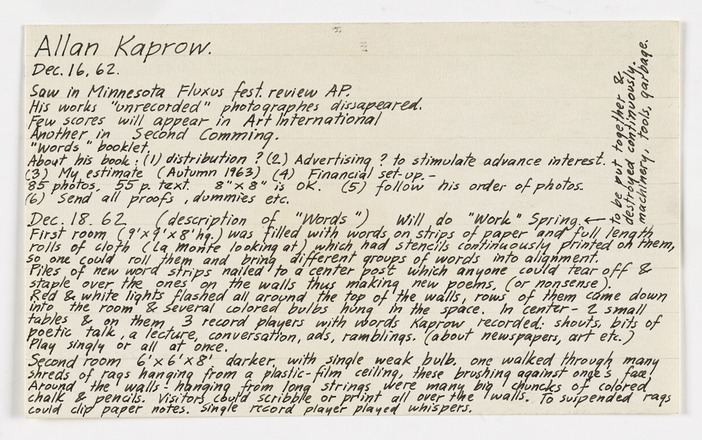 Allan Kaprow.
Dec. 16, 62.
Saw in Minnesota Fluxus fest. review AP.
His works "unrecorded" photographes dissapeared.
Few scores will appear in Art International
Another in Second Comming.
"Words" booklet.
About his book: (1) distribution? (2) Advertising? to stimulate advance interest.
(3) My estimate (Autumn 1963) (4) Financial set-up,-
85 photos, 55 p. text. 8"x8" is OK. (5) follow his order of photos.
(6) Send all proofs, dummies etc.
Dec. 18. 62 (description of "Words") Will do "Work" Spring. ←
to be put together &
destroyed continuously.
machinery, tools, garbage.
First room (9'x9'x8'hg.) was filled with words on strips of paper and full length
rolls of cloth (La monte looking at) which had stencils continuously printed on them,
so one could roll them and bring different groups of words into alignment.
Piles of new word strips nailed to a center post which anyone could tear off &
staple over the ones on the walls thus making new poems, (or nonsense).
Red & white lights flashed all around the top of the walls, rows of them came down
into the room & several colored bulbs hung in the space. In center - 2 small
tables & on them 3 record players with words Kaprow recorded: shouts, bits of
poetic talk, a lecture, conversation, ads, ramblings. (about newspapers, art etc.)
Play singly or all at once.
Second room 6'x6'x8' darker, with single weak bulb, one walked through many
shreds of rags hanging from a plastic-film ceiling, these brushing against one's face
Around the walls hanging from long strings were many big chuncks of colored
chalk & pencils. Visitors could scribble or print all over the walls. To suipended rags
could clip paper notes. Single record player played whispers.